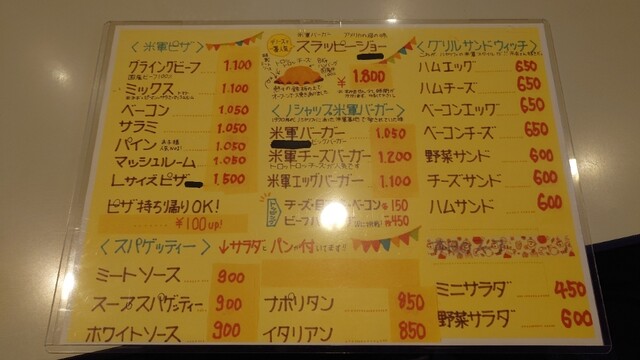 ＜米軍ピザ＞
グラインドビーフ 1,100
ミックス 1,100
ベーコン 1,050
サラミ 1,050
パイン 1,050
マッシュルーム 1,050
Lサイズピザ 1,500
ピザ持ち帰りOK!
¥100up!
米軍バーガー
スラッピージョー
¥1,800
米軍バーガー＞
米軍バーガー 1,050
米軍チーズバーガー 1,200
米軍エッグバーガー 1,100
ベーコン 150
450
＜グリルサンドウィッチ＞
ハムエッグ 650
ハムチーズ 650
ベーコンエッグ 650
ベーコンチーズ 650
野菜サンド 600
チーズサンド 600
ハムサンド 600
＜スパゲッティー＞ ↓サラダとパンが付いてます!!
ミートソース 900
スープスパゲッティー 900
ホワイトソース 900
ナポリタン 850
イタリアン 850
ミニサラダ 450
野菜サラダ 600